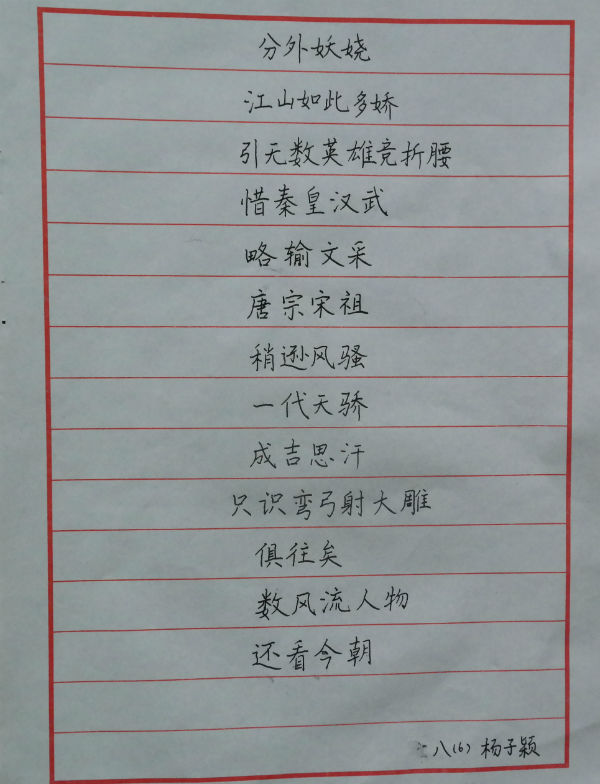 分外妖娆
江山如此多娇
引无数英雄竞折腰
惜秦皇汉武
略输文采
唐宗宋祖
稍逊风骚
一代天骄
成吉思汗
只识弯弓射大雕
俱往矣
数风流人物
还看今朝
八(6) 杨子颖